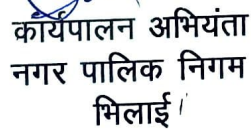 कार्यपालन अभियंता
नगर पालिक निगम
भिलाई।